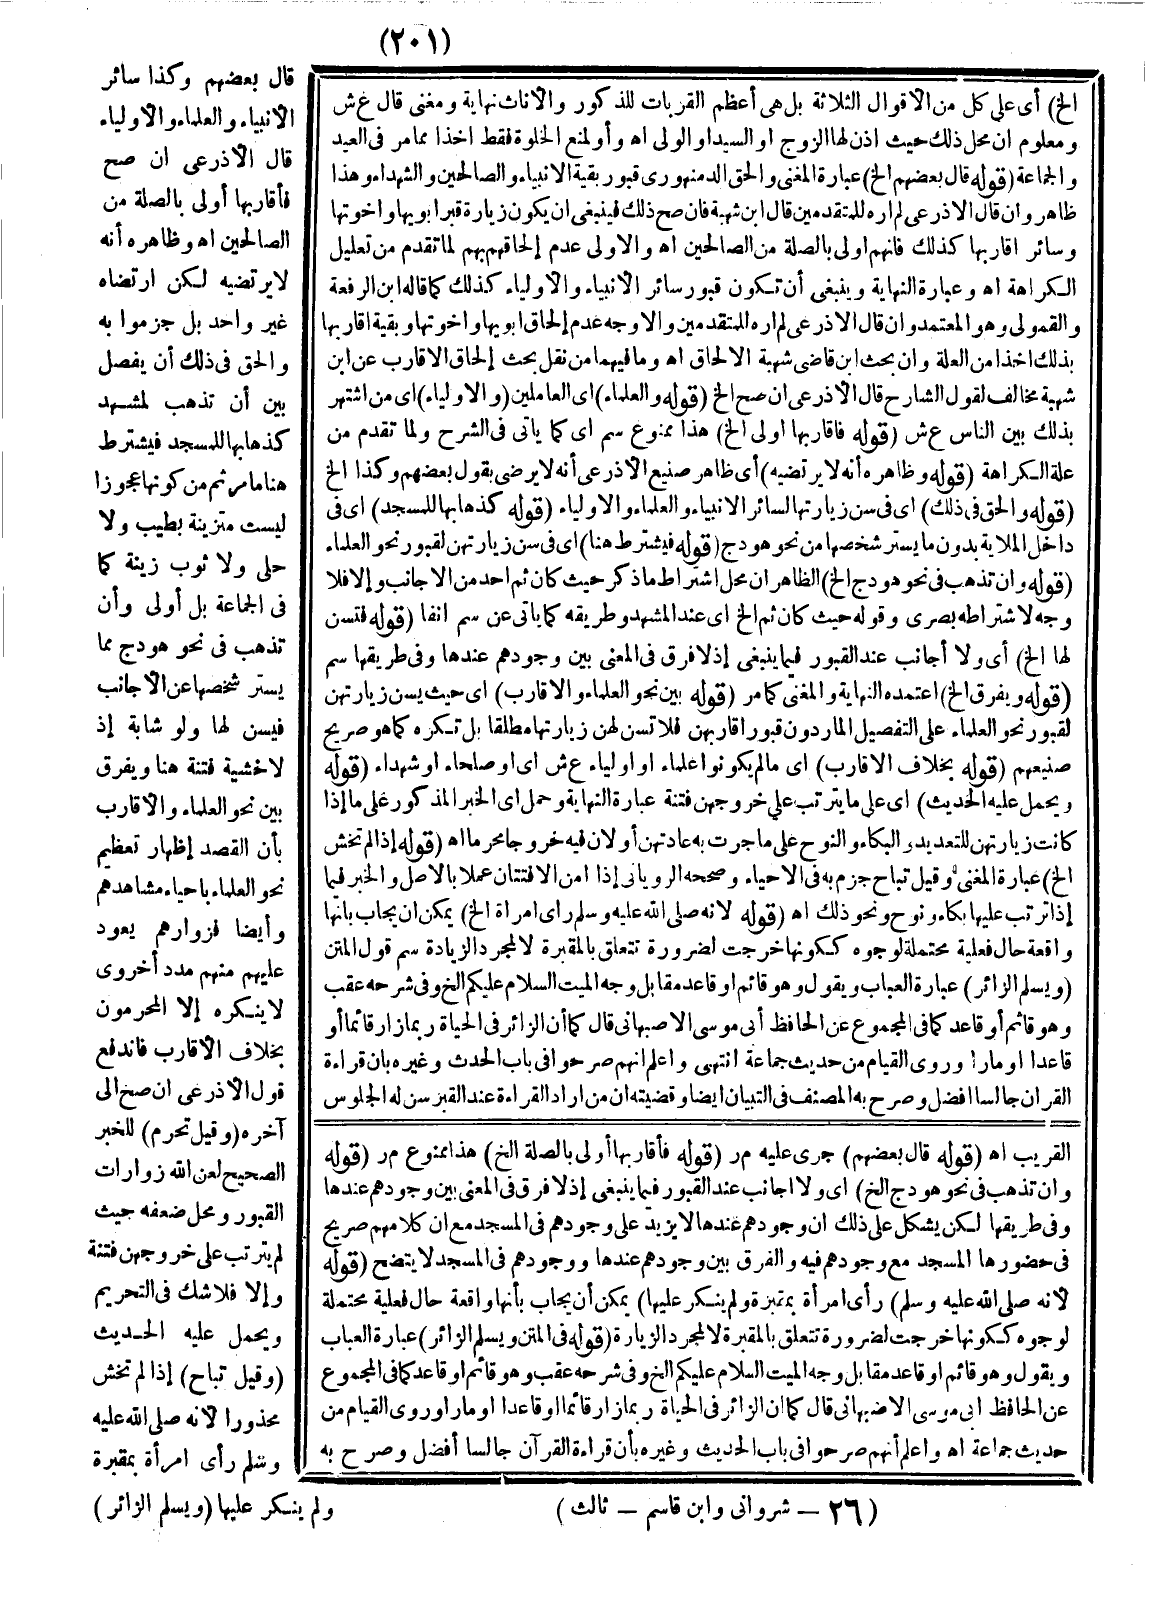 (٢٠١)
قال بعضهم وكذا سائر
الانبياء والعلماء والاولياء
قال الاذرعى ان صح
فأقاربها أولى بالصلة من
الصالحين اه وظاهره أنه
لا يرتضيه لكن ارتضاه
غير واحد بل جزموا به
والحق فى ذلك أن يفصل
بين أن تذهب لمشهد
كذهابها للمسجد فيشترط
هنا ما مر ثم من كونها عجوزا
ليست متزينة بطيب ولا
حلى ولا ثوب زينة كما
فى الجماعة بل أولى وأن
تذهب فى نحو هودج مما
يستر شخصها عن الاجانب
فيسن لها ولو شابة إذ
لا خشية فتنة هنا ويفرق
بين نحو العلماء والاقارب
بأن القصد إظهار تعظيم
نحو العلماء باحياء مشاهدهم
وأيضا فزوارهم يعود
عليهم منهم مدد أخروى
لا ينكره إلا المحرمون
بخلاف الاقارب فاندفع
قول الاذرعى ان صح الى
آخره (وقيل تحرم) للخبر
الصحيح لعن الله زوارات
القبور ومحل ضعفه حيث
لم يترتب على خروجهن فتنة
وإلا فلا شك فى التحريم
ويحمل عليه الحديث
(وقيل تباح) إذا لم تخش
محذورا لانه صلى الله عليه
وسلم رأى امرأة بمقبرة
ولم ينكر عليها (ويسلم الزائر)
الخ) أى على كل من الاقوال الثلاثة بل هى أعظم القربات للذكور والاناث نهاية ومغنى قال ع ش
ومعلوم ان محل ذلك حيث اذن لها الزوج او السيد او الولى اه وأولمنع الخلوة فقط اخذا مما مر فى العيد
والجماعة (قوله قال بعضهم الخ) عبارة المغنى والحق الدمنهورى قبور بقية الانبياء والصالحين والشهداء وهذا
ظاهر وان قال الاذرعى لم اره للمتقدمين قال ابن شهبة فان صح ذلك فينبغى ان يكون زيارة قبر ابويها واخوتها
وسائر اقاربها كذلك فانهم اولى بالصلة من الصالحين اه والاولى عدم إلحاقهم بهم لما تقدم من تعليل
الكراهة اه وعبارة النهاية وينبغى أن تكون قبور سائر الانبياء والاولياء كذلك كما قاله ابن الرفعة
والقمولى وهو المعتمد وان قال الاذرعى لم اره للمتقدمين والاوجه عدم إلحاق ابويها واخوتها وبقية اقاربها
بذلك اخذا من العلة وان بحث ابن قاضى شهبة الالحاق اه وما فيهما من نقل بحث إلحاق الاقارب عن ابن
شهبة مخالف لقول الشارح قال الاذرعى ان صح الخ (قوله والعلماء) اى العاملين (والاولياء) اى من اشتهر
بذلك بين الناس ع ش (قوله فاقاربها اولى الخ) هذا ممنوع سم اى كما يأتى فى الشرح ولما تقدم من
علة الكراهة (قوله وظاهره أنه لا يرتضيه) أى ظاهر صنيع الاذرعى أنه لا يرضى بقول بعضهم وكذا الخ
(قوله والحق فى ذلك) اى فى سن زيارتها لسائر الانبياء والعلماء والاولياء (قوله كذهابها للمسجد) اى فى
داخل الملاية بدون ما يستر شخصها من نحو هودج (قوله فيشترط هنا) اى فى سن زيارتهن لقبور نحو العلماء
(قوله وان تذهب فى نحو هودج الخ) الظاهر ان محل اشتراط ما ذكر حيث كان ثم احد من الاجانب والا فلا
وجه لاشتراطه بصرى وقوله حيث كان ثم الخ اى عند المشهد وطريقه كما يأتى عن سم انفا (قوله فتسن
لها الخ) أى ولا أجانب عند القبور فيما ينبغى إذ لا فرق فى المعنى بين وجودهم عندها وفى طريقها سم
(قوله ويفرق الخ) اعتمده النهاية والمغنى كما مر (قوله بين نحو العلماء والاقارب) اى حيث يسن زيارتهن
لقبور نحو العلماء على التفصيل المار دون قبور اقاربهن فلا تسن لهن زيارتها مطلقا بل تكره كما هو صريح
صنيعهم (قوله بخلاف الاقارب) اى ما لم يكونوا علماء او اولياء ع ش اى او صلحاء او شهداء (قوله
ويحمل عليه الحديث) اى على ما يترتب على خروجهن فتنة عبارة النهاية وحمل اى الخبر المذكور على ما إذا
كانت زيارتهن للتعديد والبكاء والنوح على ما جرت به عادتهن أو لان فيه خروجا محرما اه (قوله إذا لم تخش
الخ) عبارة المغنى وقيل تباح جزم به فى الاحياء وصححه الرويانى إذا امن الافتتان عملا بالاصل والخبر فيما
إذا ترتب عليها بكاء ونوح ونحو ذلك اه (قوله لانه صلى الله عليه وسلم رأى امراة الخ) يمكن ان يجاب بانها
واقعة حال فعلية محتملة لوجوه ككونها خرجت لضرورة تتعلق بالمقبرة لا لمجرد الزيادة سم قول المتن
(ويسلم الزائر) عبارة العباب ويقول وهو قائم او قاعد مقابل وجه الميت السلام عليكم الخ وفى شرحه عقب
وهو قائم أو قاعد كما فى المجموع عن الحافظ أبى موسى الاصبهانى قال كما أن الزائر فى الحياة ربما زار قائما أو
قاعدا او مارا وروى القيام من حديث جماعة انتهى واعلم انهم صرحوا فى باب الحدث وغيره بان قراءة
القران جالسا افضل وصرح به المصنف فى التبيان ايضا وقضيته ان من اراد القراءة عند القبر سن له الجلوس
القريب اه (قوله قال بعضهم) جرى عليه م ر (قوله فأقاربها أولى بالصلة الخ) هذا ممنوع م ر (قوله
وان تذهب فى نحو هودج الخ) اى ولا اجانب عند القبور فيما ينبغى إذ لا فرق فى المعنى بين وجودهم عندها
وفى طريقها لكن يشكل على ذلك ان وجودهم عندها لا يزيد على وجودهم فى المسجد مع ان كلامهم صريح
فى حضورها المسجد مع وجودهم فيه والفرق بين وجودهم عندها ووجودهم فى المسجد لا يتضح (قوله
لانه صلى الله عليه وسلم) رأى امرأة بمقبرة ولم ينكر عليها) يمكن أن يجاب بأنها واقعة حال فعلية محتملة
لوجوه ككونها خرجت لضرورة تتعلق بالمقبرة لا لمجرد الزيارة (قوله فى المتن ويسلم الزائر) عبارة العباب
ويقول وهو قائم او قاعد مقابل وجه الميت السلام عليكم الخ وفى شرحه عقب وهو قائم او قاعد كما فى المجموع
عن الحافظ ابى موسى الاضبهانى قال كما ان الزائر فى الحياة ربما زار قائما او قاعدا او مارا وروى القيام من
حديث جماعة اه واعلم أنهم صرحوا فى باب الحديث وغيره بأن قراءة القرآن جالسا أفضل وصرح به
(٢٦ – شروانى وابن قاسم – ثالث)